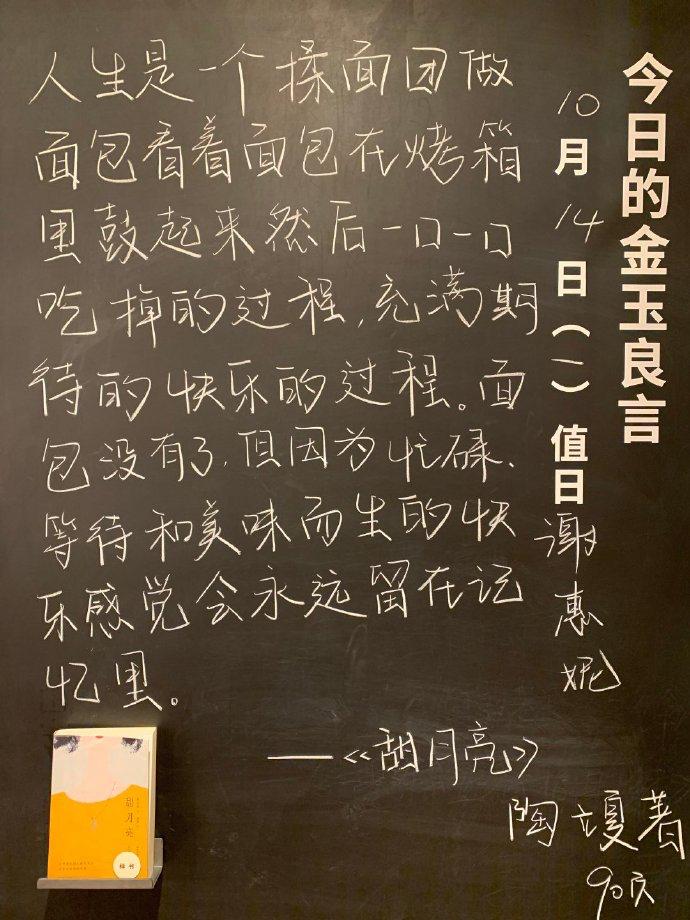 今日的金玉良言
10月14日（一）值日
谢惠妮
人生是一个揉面团做
面包看着面包在烤箱
里鼓起来然后一口一口
吃掉的过程，充满期
待的快乐的过程。面
包没有了，但因为忙碌、
等待和美味而生的快
乐感觉会永远留在记
忆里。
——《甜月亮》
陶瓊著
90页
甜月亮
样书